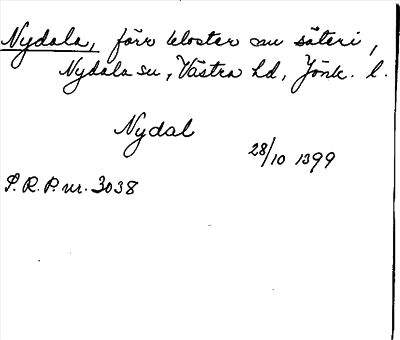 Nydala, förr kloster nu säteri,
Nydala sn, Västra hd, Jönk. l.
Nydal
28/10 1399
S.R.P. nr. 3038